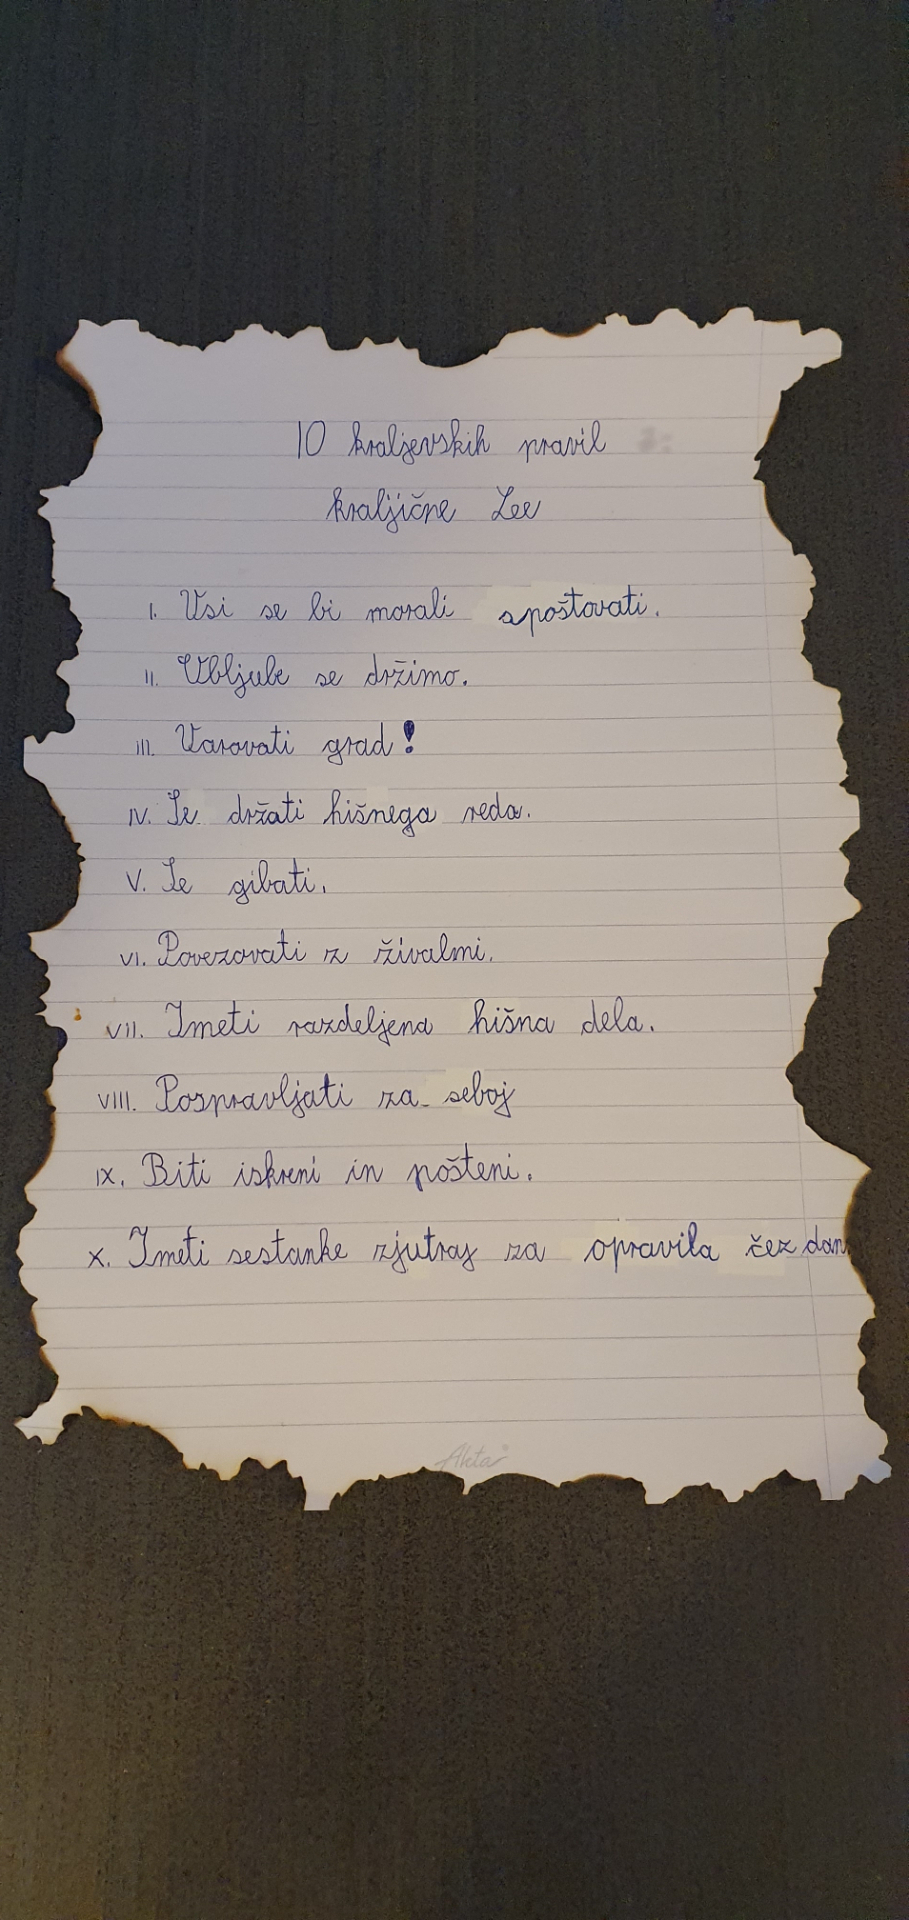 10 kraljevskih pravil
kraljične Lee
I. Vsi se bi morali spoštovati.
II. Vbljube se držimo.
III. Varovati grad!
IV. Se držati hišnega reda.
V. Se gibati.
VI. Povezovati z živalmi.
VII. Imeti razdeljena hišna dela.
VIII. Pospravljati za seboj
IX. Biti iskreni in pošteni.
X. Imeti sestanke zjutraj za opravila čez dan
Akta